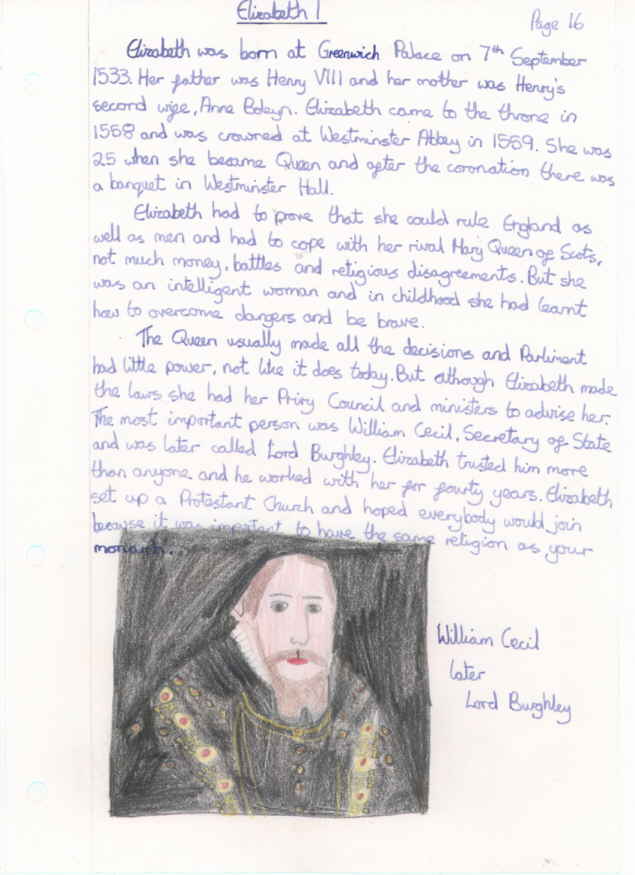 Elizabeth I
Page 16
Elizabeth was born at Greenwich Palace on 7th September
1533. Her father was Henry VIII and her mother was Henry's
second wife, Anne Boleyn. Elizabeth came to the throne in
1558 and was crowned at Westminster Abbey in 1559. She was
25 when she became Queen and after the coronation there was
a banquet in Westminster Hall.
Elizabeth had to prove that she could rule England as
well as men and had to cope with her rival Mary Queen of Scots,
not much money, battles and religious disagreements. But she
was an intelligent woman and in childhood she had learnt
how to overcome dangers and be brave.
The Queen usually made all the decisions and Parliment
had little power, not like it does today. But although Elizabeth made
the laws she had her Privy Council and ministers to advise her.
The most important person was William Cecil, Secretary of State
and was later called Lord Burghley. Elizabeth trusted him more
than anyone and he worked with her for fourty years. Elizabeth
set up a Protestant Church and hoped everybody would join
because it was important to have the same religion as your
monarch.
William Cecil
later
Lord Burghley